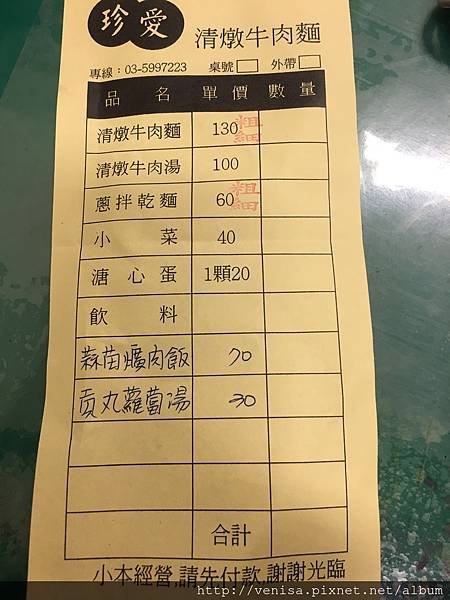 珍愛 清燉牛肉麵
專線：03-5997223 桌號 外帶
品名 單價 數量
清燉牛肉麵 130 粗 細
清燉牛肉湯 100
蔥拌乾麵 60 粗 細
小菜 40
溏心蛋 1顆20
飲料
蒜苗爌肉飯 70
貢丸蘿蔔湯 30
合計
小本經營,請先付款,謝謝光臨
http://venisa.pixnet.net/album